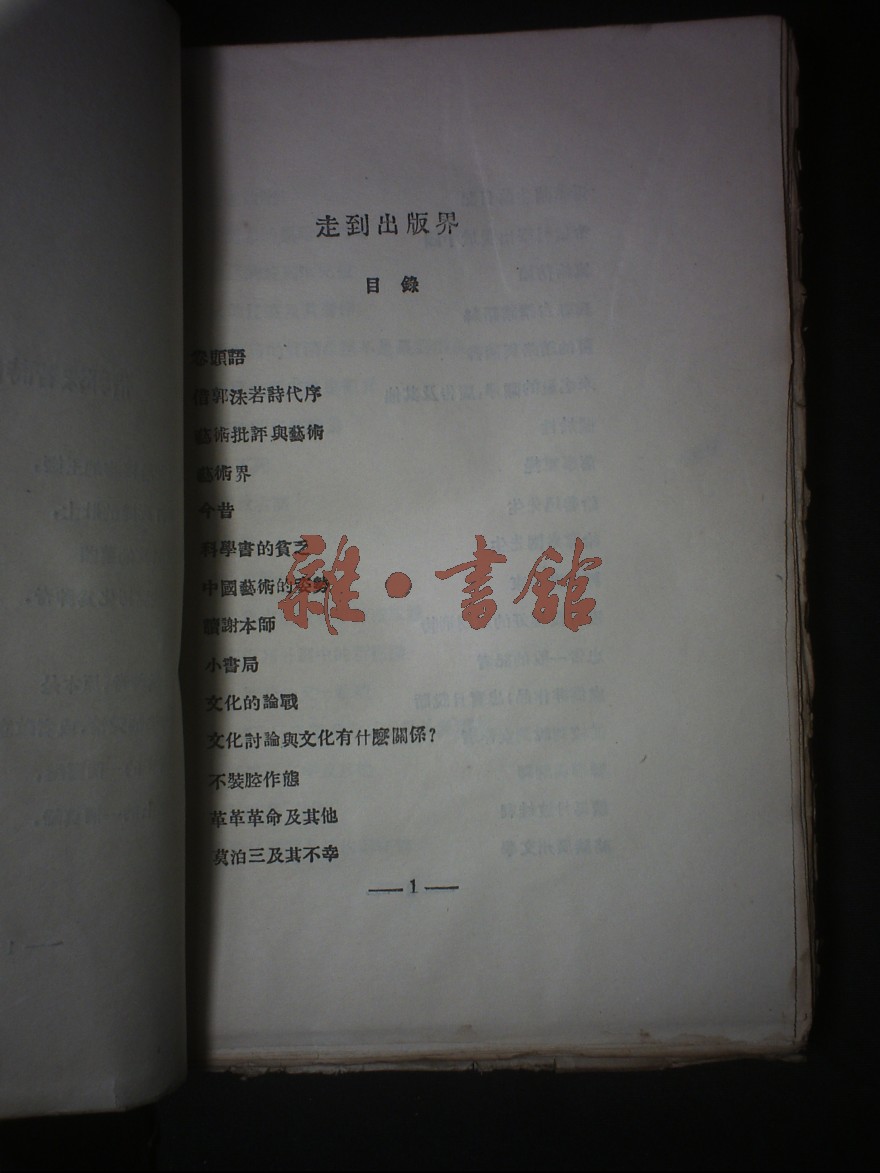 走到出版界
目錄
卷頭語
借郭沫若詩代序
藝術批評與藝術
藝術界
今昔
科學書的貧乏
中國藝術的姿勢
雜·書館
謝本師
小書局
文化的論戰
文化討論與文化有什麼關係？
不裝腔作態
革革革命及其他
莫泊三及其不幸
— 1 —